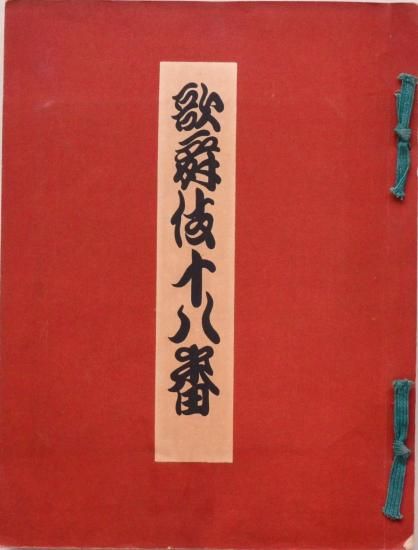 歌舞伎十八番